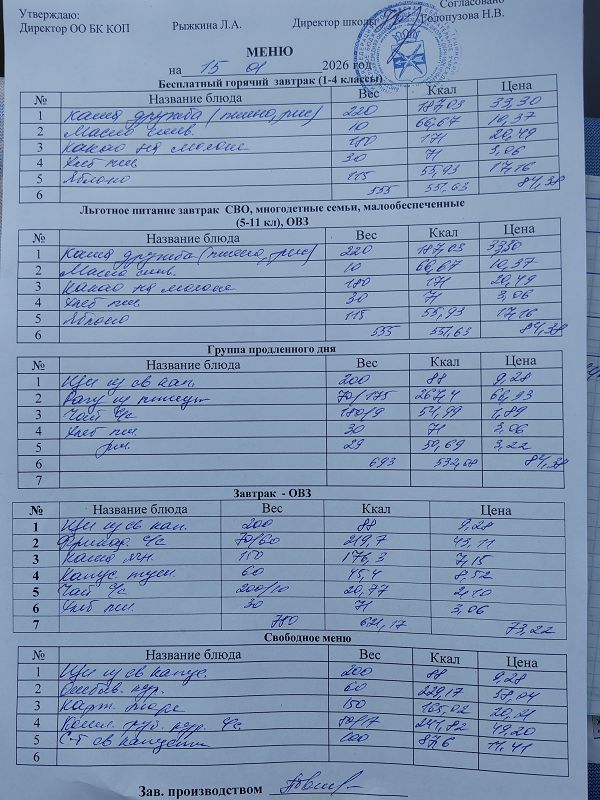 Утверждаю:
Директор ОО БК КОП Рыжкина Л.А. Директор школы Согласовано
Голопузова Н.В.
МЕНЮ
на 15 01 2026 год
Бесплатный горячий завтрак (1-4 классы)
№ Название блюда Вес Ккал Цена
1 Каша дружба (пшено, рис) 220 187,03 33,30
2 Масло слив. 10 66,67 10,37
3 Какао на молоке 180 171 20,49
4 Хлеб пш. 30 71 3,06
5 Яблоко 115 55,93 17,16
6 555 551,63 84,38
Льготное питание завтрак СВО, многодетные семьи, малообеспеченные
(5-11 кл), ОВЗ
№ Название блюда Вес Ккал Цена
1 Каша дружба (пшено, рис) 220 187,03 33,30
2 Масло слив. 10 66,67 10,37
3 Какао на молоке 180 171 20,49
4 Хлеб пш. 30 71 3,06
5 Яблоко 115 55,93 17,16
6 555 551,63 84,38
Группа продленного дня
№ Название блюда Вес Ккал Цена
1 Щи из св кап. 200 88 9,28
2 Рагу из птицы 70/175 267,4 66,93
3 Чай с/с 180/9 54,99 1,89
4 Хлеб пш. 30 71 3,06
5 рж. 29 50,69 3,22
6 693 532,08 84,38
7
Завтрак - ОВЗ
№ Название блюда Вес Ккал Цена
1 Щи из св кап. 200 88 9,28
2 Фрикад. с/с 70/60 219,7 43,11
3 Каша ячн. 150 176,3 7,15
4 Капус. туш. 60 75,4 8,52
5 Чай с/с 200/10 20,77 2,10
6 Хлеб пш. 30 71 3,06
7 780 621,17 73,22
Свободное меню
№ Название блюда Вес Ккал Цена
1 Щи из св капус. 200 88 9,28
2 кур. 60 229,17 58,04
3 Карт. пюре 150 165,02 20,21
4 руб. кур. с/с 70/17 241,82 49,20
5 С-т св капусты 100 87,6 11,41
6
Зав. производством